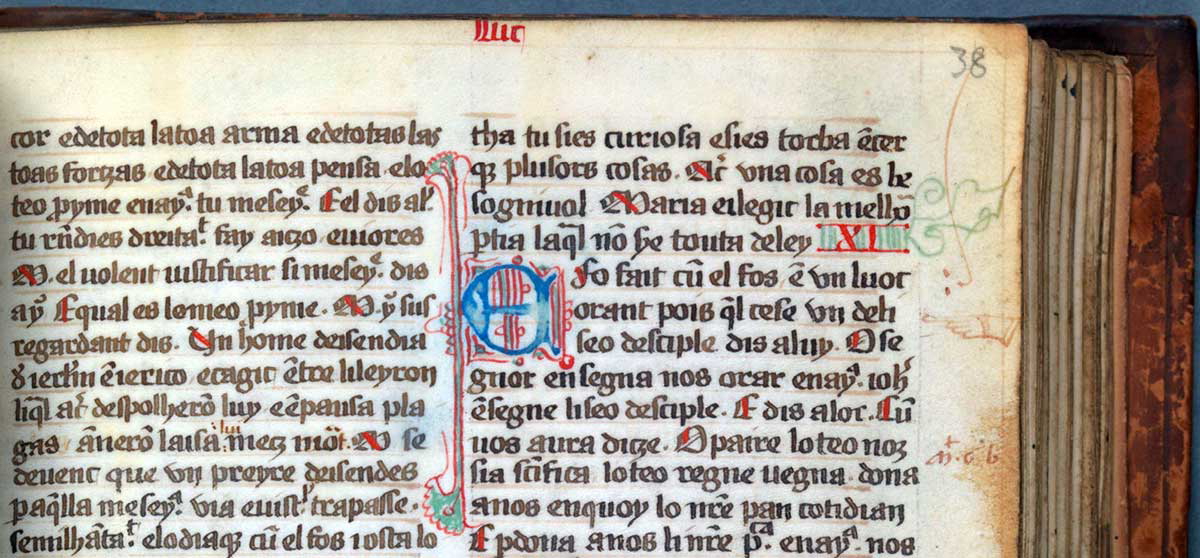 Luc
38
cor edetota latoa arma edetotas las
toas forzas edetota latoa pensa elo
teo pyme enayᵃ. tu meseyᵉ. Eel dis alˢ
tu rn̄dies dreitaᵗ fay aizo euiores
M. el uolent iustificar si meseyᵉ. dis
ay᷍ Equal es lomeo pyme. M. y᷍ sus
regardant dis. Un home deisendia
d' ierlm̄ ēierico ecagic ētre li leyron
liq̄l ac̄ despolherō luy eēpausa pla
gas ānerō laisa luı mecz mōt. M se
deuenc que vn preyre deisendes
paq̄lla meseyᵃ. via euistˡ trapasse.
semilhātaᵗ elodiaq̄ cū el fos iosta lo
tha tu sies curiosa esies torba ēter
qꝫ plusors cosas. Ac̄ vna cosa es be
sogniuol Maria eilegic la mellꝫ
ptia laq̄l nō se touta deley XI
E fo fait cū el fos ē vn luoc
orant pois q̄l cese vn deli
seo desciple dis aluy. O se
gnor ensegna nos orar enayᵃ. ioħ
ēsegne li seo desciple. E dis alor. Cū
uos aura dize. O paire lo teo noz
sia sc̄ifica lo teo regne uegna. dona
a nos enquoy lo nr̄e pan cotidian
E pdona a nos li nr̄e pᶜᵃ. enayᵃ. nos